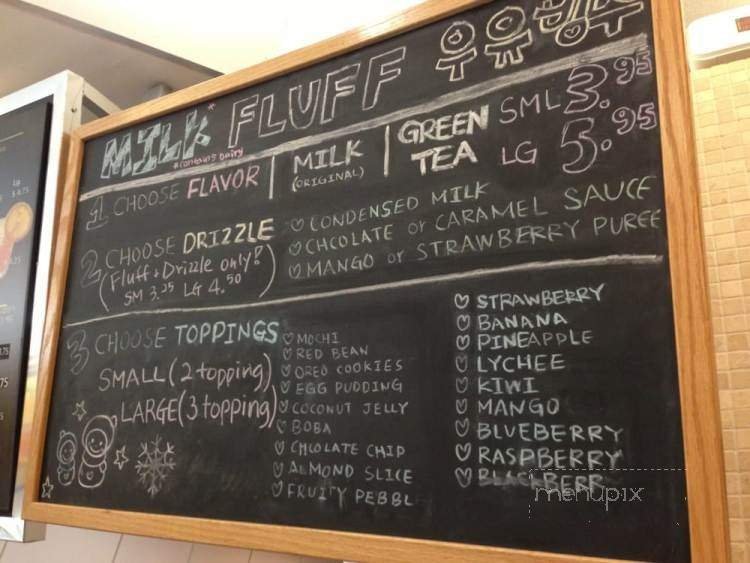 MILK* FLUFF
*contains dairy
1 CHOOSE FLAVOR
MILK
(ORIGINAL)
GREEN
TEA
SML 3.95
LG 5.95
2 CHOOSE DRIZZLE
(Fluff + Drizzle only!
SM 3.25 LG 4.50)
CONDENSED MILK
CHCOLATE or CARAMEL SAUCE
MANGO or STRAWBERRY PUREE
3 CHOOSE TOPPINGS
SMALL (2 topping)
LARGE (3 topping)
MOCHI
RED BEAN
OREO COOKIES
EGG PUDDING
COCONUT JELLY
BOBA
CHCOLATE CHIP
ALMOND SLICE
FRUITY PEBBL
STRAWBERRY
BANANA
PINEAPPLE
LYCHEE
KIWI
MANGO
BLUEBERRY
RASPBERRY
BLACKBERR
menupix